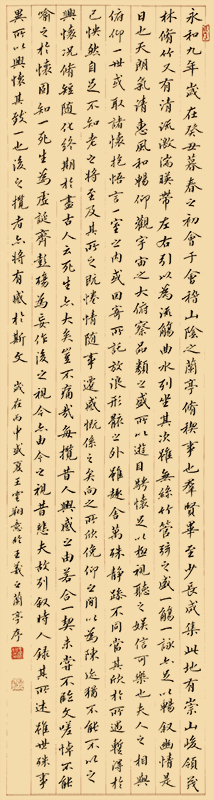 永和九年歲在癸丑暮春之初會于會稽山陰之蘭亭脩稧事也羣賢畢至少長咸集此地有崇山峻領茂
林脩竹又有清流激湍暎帶左右引以為流觴曲水列坐其次雖無絲竹管弦之盛一觴一詠亦足以暢叙幽情是
日也天朗氣清惠風和暢仰觀宇宙之大俯察品類之盛所以遊目騁懷足以極視聽之娛信可樂也夫人之相與
俯仰一世或取諸懷抱悟言一室之內或因寄所託放浪形骸之外雖趣舍萬殊靜躁不同當其欣於所遇暫得於
己怏然自足不知老之將至及其所之既惓情隨事遷感慨係之矣向之所欣俛仰之間以為陳迹猶不能不以之
興懷況脩短隨化終期於盡古人云死生亦大矣豈不痛哉每攬昔人興感之由若合一契未嘗不臨文嗟悼不能
喻之於懷固知一死生為虛誕齊彭殤為妄作後之視今亦由今之視昔悲夫故列叙時人錄其所述雖世殊事
異所以興懷其致一也後之攬者亦將有感於斯文 歲在丙申盛夏王雲於王羲之蘭亭序